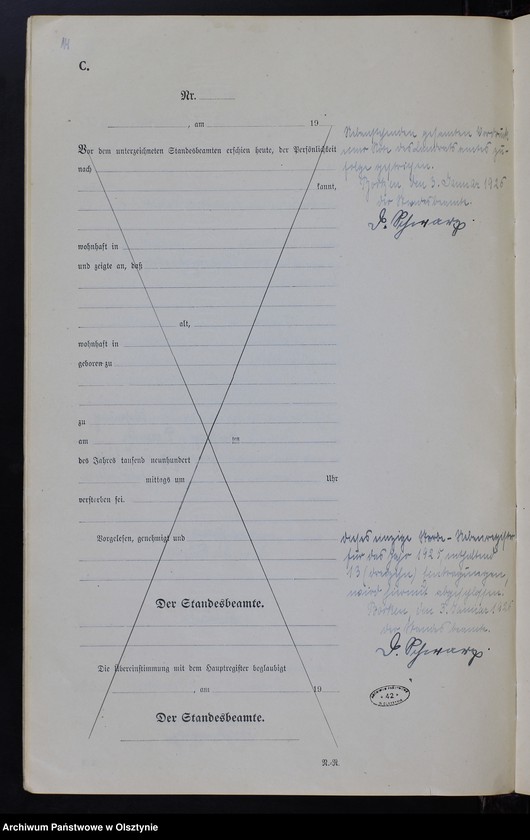 C.
Nr.
, am 19
Vor dem unterzeichneten Standesbeamten erschien heute, der Persönlichkeit
nach
kannt,
wohnhaft in
und zeigte an, daß
alt,
wohnhaft in
geboren zu
zu
am ten
des Jahres tausend neunhundert
mittags um Uhr
verstorben sei.
Vorgelesen, genehmigt und
Der Standesbeamte.
Die Übereinstimmung mit dem Hauptregister beglaubigt
, am 19
Der Standesbeamte.
N.-R.
Nebenstehenden gesamten Vordruck
gestrichen.
den 3. Januar 1925
der Standesbeamte.
Schwarz
dieses einzige Sterbe-Nebenregister
für das Jahr 1925 enthaltend
13 (dreizehn) Eintragungen,
wird hiermit abgeschlossen.
Januar
der Standesbeamte.
Schwarz
42
Archiwum Państwowe w Olsztynie